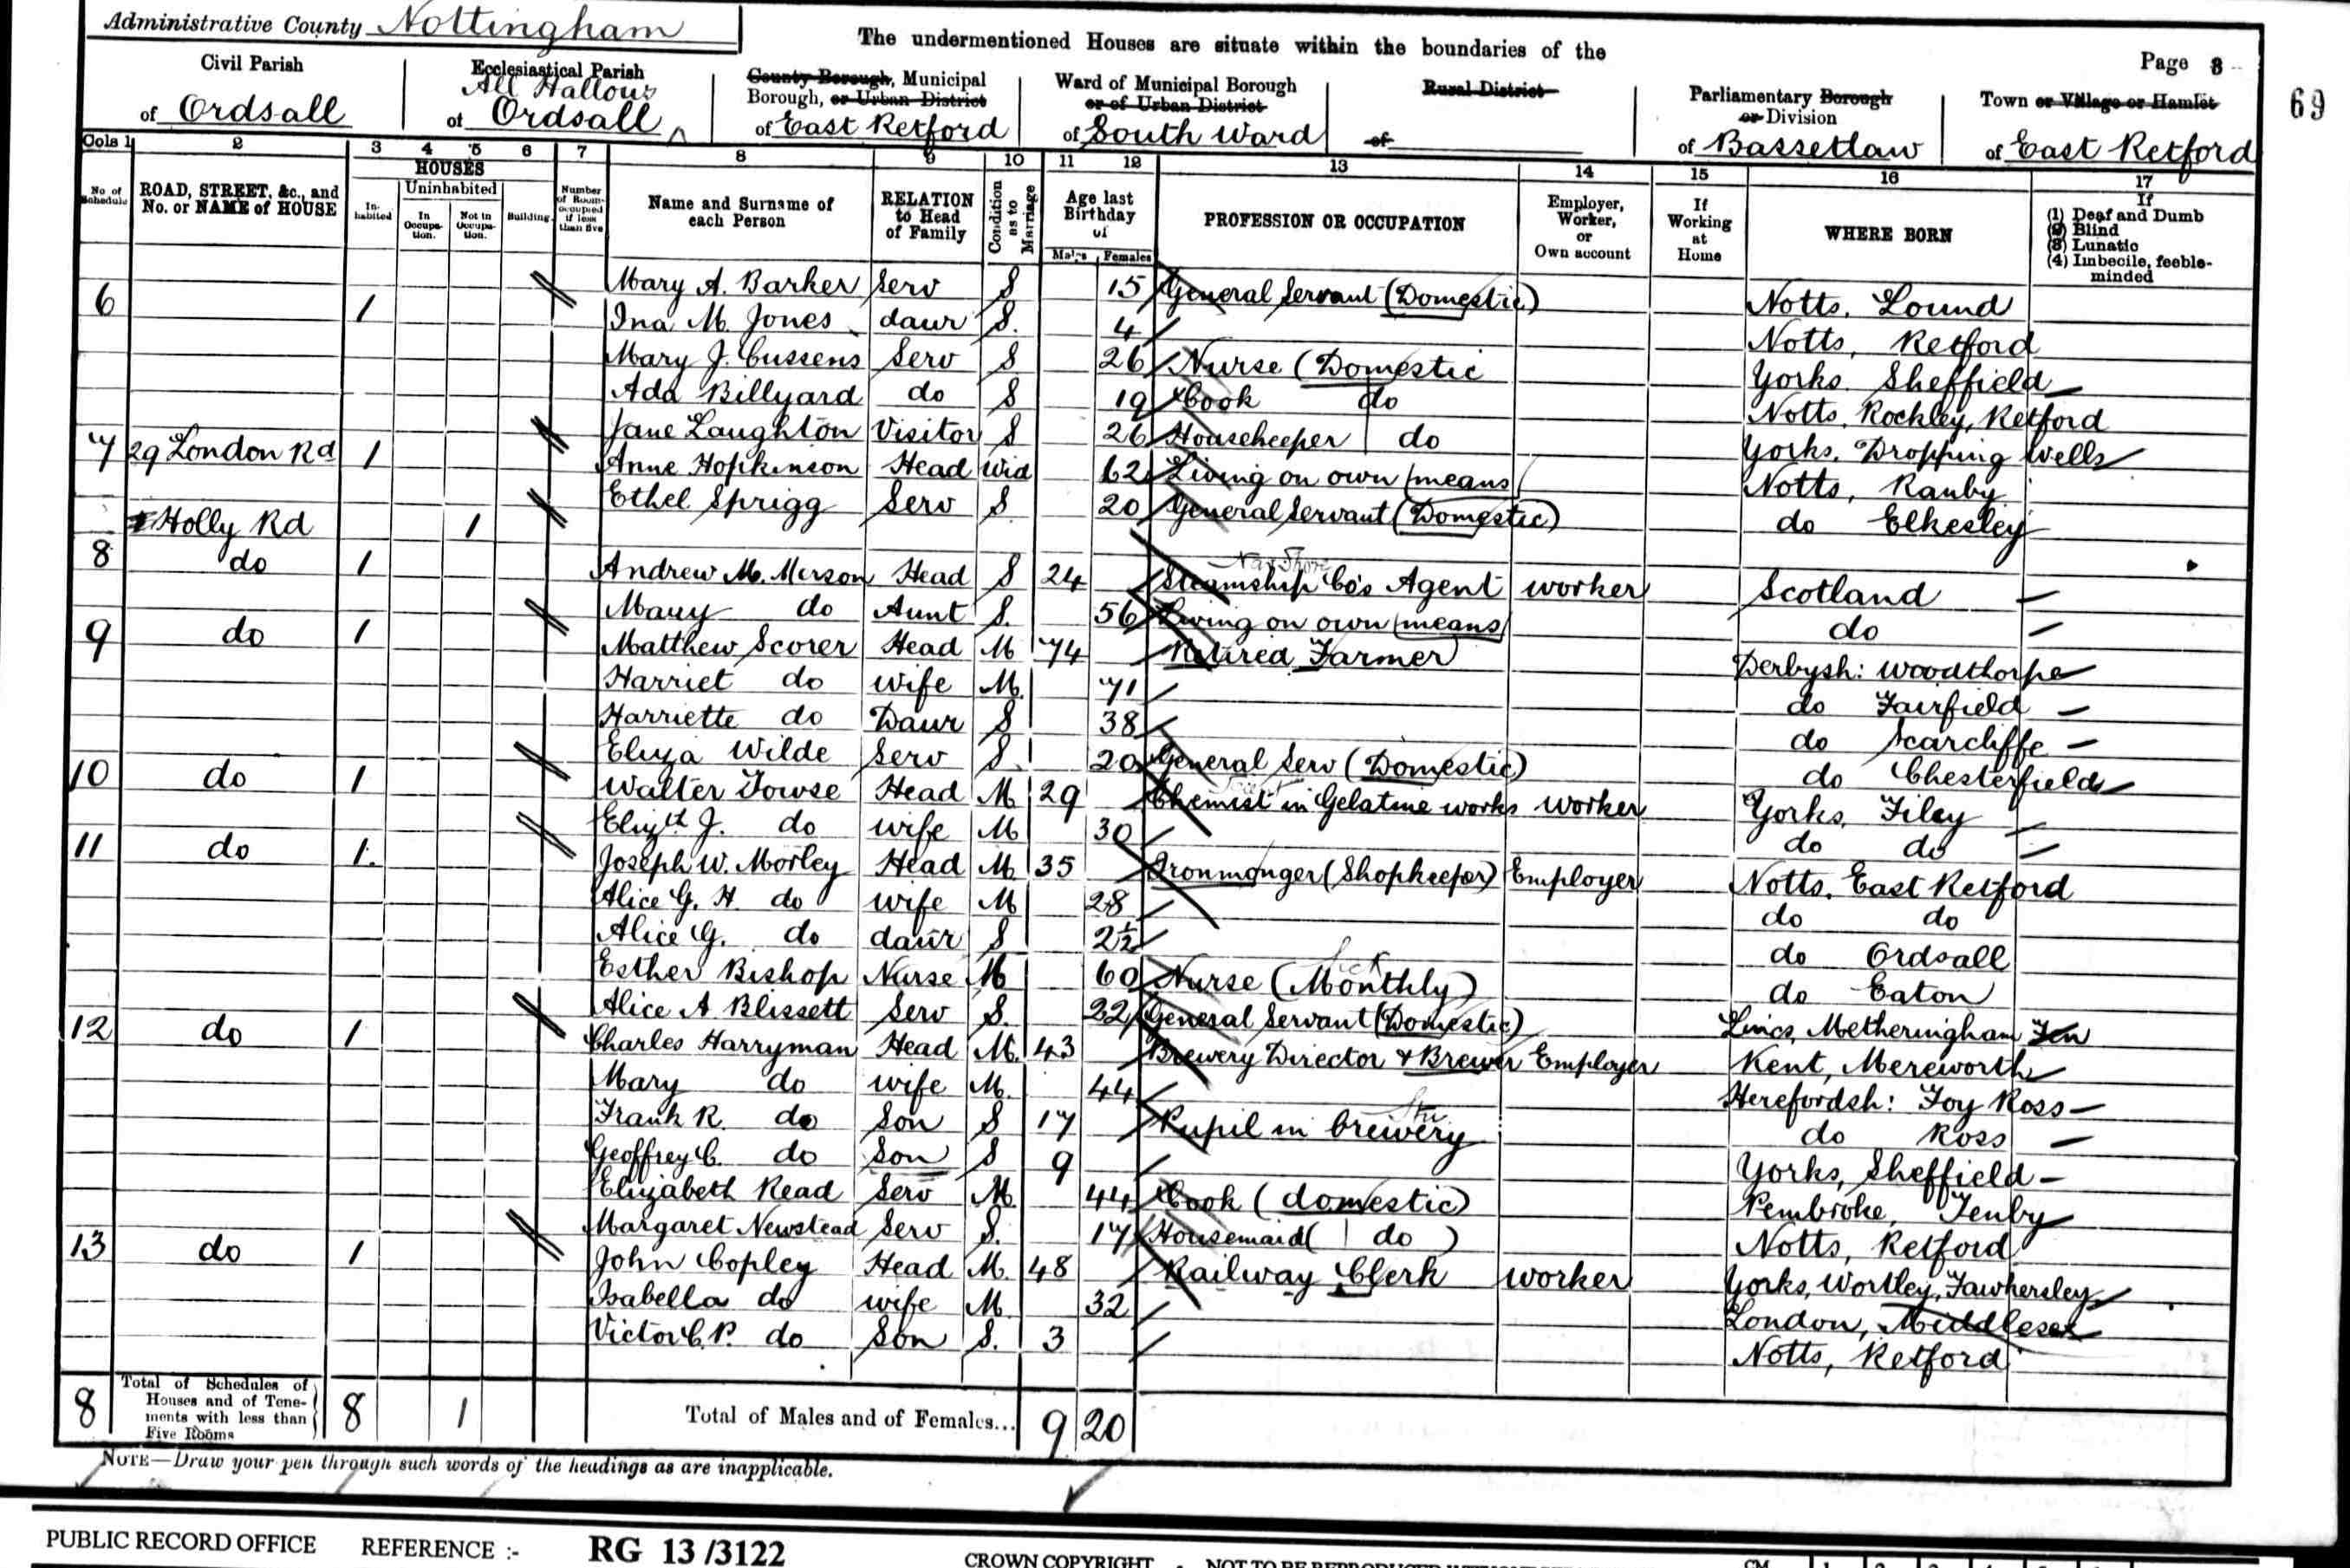 Administrative County Nottingham
The undermentioned Houses are situate within the boundaries of the
Page 8
69
Civil Parish of Ordsall
Ecclesiastical Parish of All Hallows Ordsall
County Borough, Municipal Borough, or Urban District of East Retford
Ward of Municipal Borough or of Urban District of South Ward
Rural District of
Parliamentary Borough or Division of Bassetlaw
Town or Village or Hamlet of East Retford
Cols 1 2 3 4 5 6 7 8 9 10 11 12 13 14 15 16 17
No. of Schedule
ROAD, STREET, &c., and No. or NAME of HOUSE
HOUSES
Inhabited
Uninhabited
In Occupation.
Not in Occupation.
Building
Number of Rooms occupied if less than five
Name and Surname of each Person
RELATION to Head of Family
Condition as to Marriage
Age last Birthday of
Males Females
PROFESSION OR OCCUPATION
Employer, Worker, or Own account
If Working at Home
WHERE BORN
If (1) Deaf and Dumb (2) Blind (3) Lunatic (4) Imbecile, feeble-minded
Mary A. Barker Serv S 15 General Servant (Domestic) Notts. Lound
6 1 Ina M. Jones daur S. 4 Notts, Retford
Mary J. Cussens Serv S 26 Nurse (Domestic Yorks. Sheffield
Ada Billyard do S 19 Cook do Notts, Rockley, Retford
Jane Laughton Visitor S 26 Housekeeper do Yorks, Dropping Wells
7 29 London Rd 1 Anne Hopkinson Head Wid 62 Living on own means Notts, Ranby
Ethel Sprigg Serv S. 20 General Servant (Domestic) do Elkesley
Holly Rd 1
8 do 1 Andrew M. Merson Head S 24 Steamship Co's Agent worker Scotland
Mary do Aunt S. 56 Living on own means do
9 do 1 Matthew Scorer Head M 74 Retired Farmer Derbysh: Woodthorpe
Harriet do wife M. 71 do Fairfield
Harriette do Daur S 38 do Scarcliffe
Eliza Wilde Serv S. 20 General Serv (Domestic) do Chesterfield
10 do 1 Walter Towse Head M 29 Chemist in Gelatine works worker Yorks, Filey
Elizth J. do wife M 30 do do
11 do 1. Joseph W. Morley Head M 35 Ironmonger (Shopkeeper) Employer Notts. East Retford
Alice G. H. do wife M 28 do do
Alice G. do daur S 2½ do Ordsall
Esther Bishop Nurse M 60 Nurse (Monthly) Sick do Eaton
Alice A Blissett Serv S. 22 General Servant (Domestic) Lincs, Metheringham Fen
12 do 1 Charles Harryman Head M. 43 Brewery Director & Brewer Employer Kent, Mereworth
Mary do wife M. 44 Herefordsh: Foy Ross
Frank R. do Son S 17 Pupil in brewery do Ross
Geoffrey C. do Son S 9 Yorks, Sheffield
Elizabeth Read Serv M. 44 Cook (domestic) Pembroke, Tenby
Margaret Newstead Serv S. 17 Housemaid ( do ) Notts, Retford
13 do 1 John Copley Head M. 48 Railway Clerk worker Yorks, Wortley,
Isabella do wife M. 32 London, Middlesex
Victor C. P. do Son S. 3 Notts, Retford
8 Total of Schedules of Houses and of Tenements with less than Five Rooms 8 1 Total of Males and of Females... 9 20
NOTE—Draw your pen through such words of the headings as are inapplicable.
PUBLIC RECORD OFFICE REFERENCE :- RG 13/3122
CROWN COPYRIGHT
CM 1 2 3 4 5